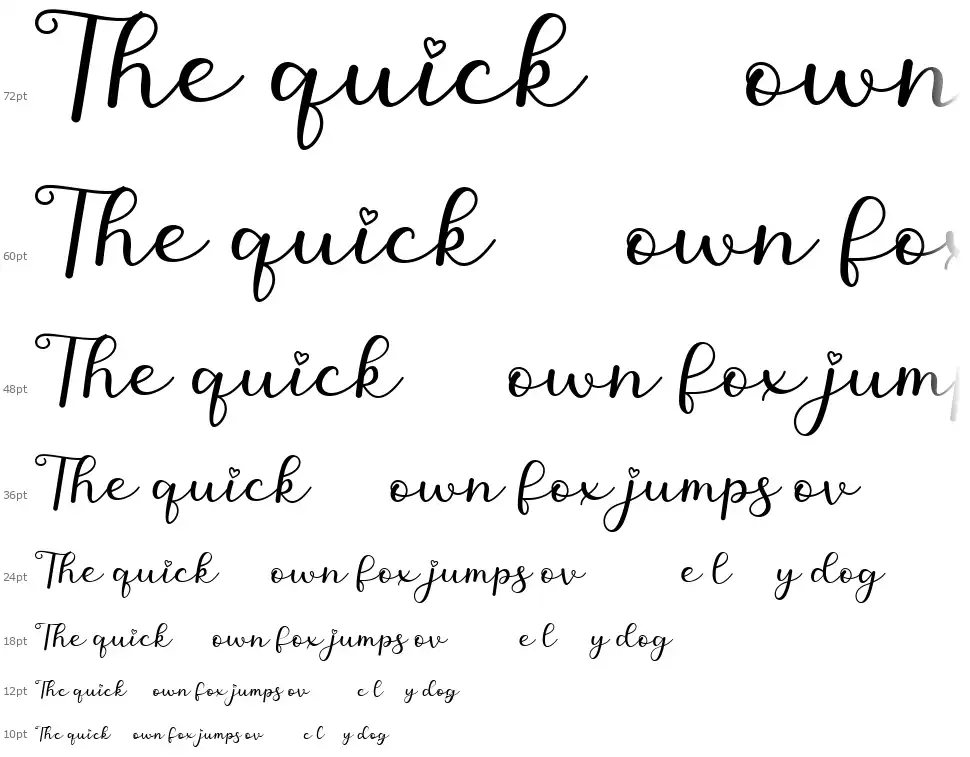 72pt The quick own
60pt The quick own fox
48pt The quick own fox jump
36pt The quick own fox jumps ov
24pt The quick own fox jumps ov e l y dog
18pt The quick own fox jumps ov e l y dog
12pt The quick own fox jumps ov e l y dog
10pt The quick own fox jumps ov e l y dog